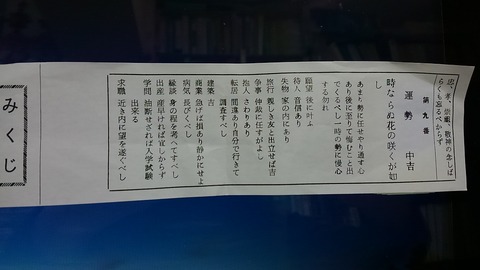 忠、孝、崇祖、敬神の念しば
らくも忘るべからず
第九番
運勢 中吉
時ならぬ花の咲くが如
し
あまり勢に任せやり通す心
あり後に至りて悔むこと出
でくるべし一時の勢に慢心
する勿れ
願望 後に叶ふ
待人 音信あり
失物 家の内にあり
旅行 親しき友と出立せば吉
争事 仲裁に任すがよし
指人 さわりあり
転居 間違あり自分で行きて
調査すべし
建築 吉
商業 急げば損あり静かにせよ
病気 長びくべし
縁談 身の程を考へてすべし
出産 産早ければ宜しからず
学問 油断せざれば入学試験
出来る
求職 近き内に望を遂ぐべし
みくじ